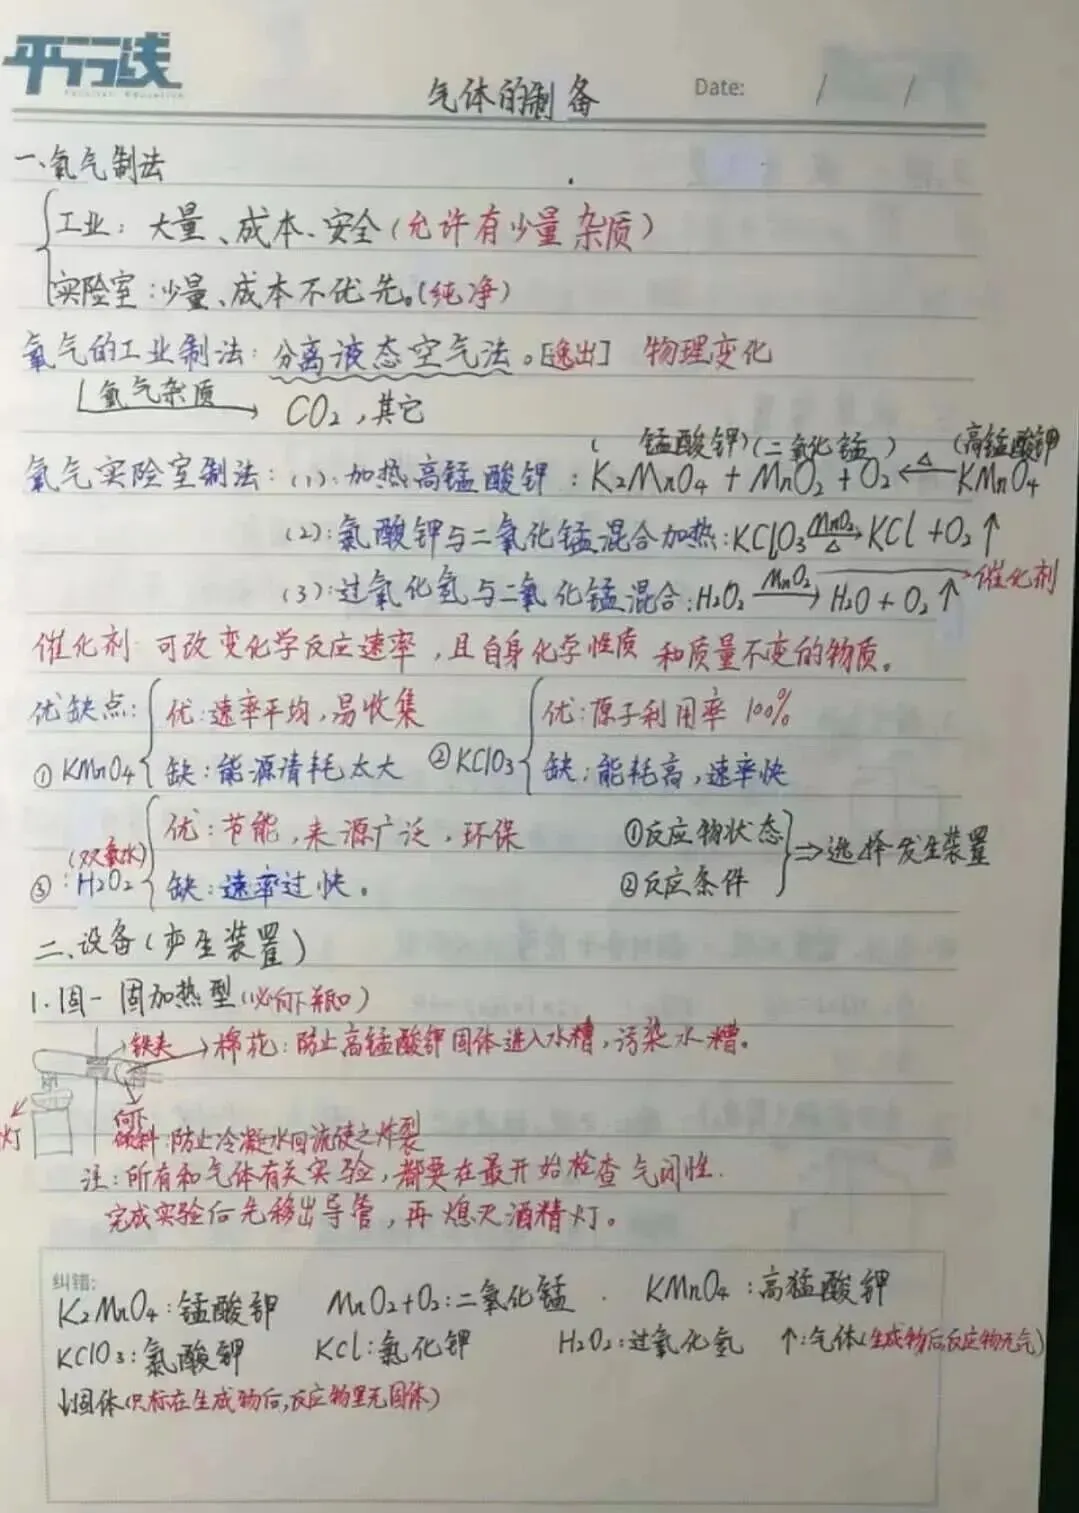 平行线
气体的制备
Date: / /
一、氧气制法
工业：大量、成本、安全(允许有少量杂质)
实验室：少量、成本不优先。(纯净)
氧气的工业制法：分离液态空气法。[逸出] 物理变化
氧气杂质 CO₂，其它
(锰酸钾)(二氧化锰) (高锰酸钾
氧气实验室制法：(1)：加热高锰酸钾：K₂MnO₄+MnO₂+O₂ ←△ KMnO₄
(2)：氯酸钾与二氧化锰混合加热：KClO₃ MnO₂ △→ KCl+O₂↑
(3)：过氧化氢与二氧化锰混合：H₂O₂ MnO₂→ H₂O+O₂↑ →催化剂
催化剂：可改变化学反应速率，且自身化学性质和质量不变的物质。
优缺点： 优：速率平均，易收集 优：原子利用率 100%
①KMnO₄ 缺：能源清耗太大 ②KClO₃ 缺：能耗高，速率快
优：节能，来源广泛，环保 ①反应物状态
(双氧水) ⇒选择发生装置
③：H₂O₂ 缺：速率过快。 ②反应条件
二、设备(产生装置)
1.固一固加热型(必向下瓶口)
铁夹 棉花：防止高锰酸钾固体进入水糟，污染水糟。
灯 向下倾斜：防止冷凝水回流使之炸裂
注：所有和气体有关实验，都要在最开始检查气闭性.
完成实验后先移出导管，再熄灭酒精灯。
纠错:
K₂MnO₄：锰酸钾 MnO₂+O₂：二氧化锰. KMnO₄：高猛酸钾
KClO₃：氯酸钾 KCl：氯化钾 H₂O₂：过氧化氢 ↑：气体(生成物后反应物无气)
↓固体(只标在生成物后,反应物里无固体)